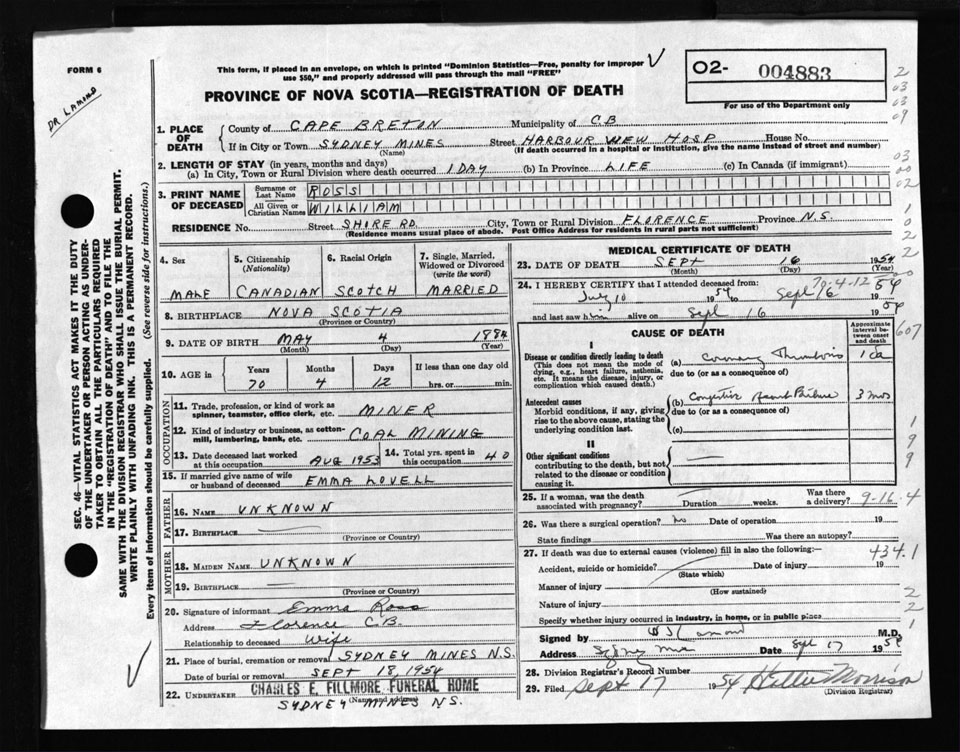 FORM 6
This form, if placed in an envelope, on which is printed "Dominion Statistics—Free, penalty for improper
use $50," and properly addressed will pass through the mail "FREE"
✓
O2- 004883
For use of the Department only
DR LAMOND
PROVINCE OF NOVA SCOTIA—REGISTRATION OF DEATH
1. PLACE OF DEATH { County of CAPE BRETON Municipality of C.B
If in City or Town SYDNEY MINES Street HARBOUR VIEW HOSP House No.
(Name) (If death occurred in a hospital or institution, give the name instead of street and number)
2. LENGTH OF STAY (in years, months and days)
(a) In City, Town or Rural Division where death occurred 1 DAY (b) In Province LIFE (c) In Canada (if immigrant)
3. PRINT NAME OF DECEASED { Surname or Last Name ROSS
All Given or Christian Names WILLIAM
RESIDENCE No. Street SHORE RD. City, Town or Rural Division FLORENCE Province N.S.
(Residence means usual place of abode. Post Office Address for residents in rural parts not sufficient)
4. Sex
MALE
5. Citizenship
(Nationality)
CANADIAN
6. Racial Origin
SCOTCH
7. Single, Married,
Widowed or Divorced
(write the word)
MARRIED
8. BIRTHPLACE NOVA SCOTIA
(Province or Country)
9. DATE OF BIRTH MAY 4 1884
(Month) (Day) (Year)
10. AGE in { Years Months Days If less than one day old
70 4 12 hrs. or min.
OCCUPATION
11. Trade, profession, or kind of work as
spinner, teamster, office clerk, etc. MINER
12. Kind of industry or business, as cotton-
mill, lumbering, bank, etc. COAL MINING
13. Date deceased last worked
at this occupation AUG 1953
14. Total yrs. spent in
this occupation 40
15. If married give name of wife
or husband of deceased EMMA LOVELL
FATHER
16. Name UNKNOWN
17. Birthplace —
(Province or Country)
MOTHER
18. Maiden Name UNKNOWN
19. Birthplace —
(Province or Country)
20. Signature of informant Emma Ross
Address Florence C.B
Relationship to deceased Wife
21. Place of burial, cremation or removal SYDNEY MINES N.S.
Date of burial or removal SEPT 18, 1954
22. UNDERTAKER CHARLES E. FILLMORE FUNERAL HOME
(Name and address)
SYDNEY MINES N.S.
MEDICAL CERTIFICATE OF DEATH
23. DATE OF DEATH SEPT 16 1954
(Month) (Day) (Year)
70-4-12
24. I HEREBY CERTIFY that I attended deceased from:
July 10 1954 to Sept 16 1954
and last saw him alive on Sept 16 1954
CAUSE OF DEATH
Approximate interval between onset and death
I
Disease or condition directly leading to death
(This does not mean the mode of
dying, e.g., heart failure, asthenia,
etc. It means the disease, injury, or
complication which caused death.)
(a) Coronary Thrombosis 1 da
due to (or as a consequence of)
Antecedent causes
Morbid conditions, if any, giving
rise to the above cause, stating the
underlying condition last.
(b) Congestive Heart Failure 3 mos
due to (or as a consequence of)
(c)
II
Other significant conditions
contributing to the death, but not
related to the disease or condition
causing it.
—
25. If a woman, was the death
associated with pregnancy? Duration weeks. Was there
a delivery? 9-16-4
26. Was there a surgical operation? no Date of operation 19
State findings Was there an autopsy?
27. If death was due to external causes (violence) fill in also the following:—
434.1
Accident, suicide or homicide? Date of injury 19
(State which)
Manner of injury
(How sustained)
Nature of injury
Specify whether injury occurred in industry, in home, or in public place
Signed by M.D.
Address Sydney Mines Date Sept 17 1954
28. Division Registrar's Record Number
29. Filed Sept 17 1954 Hattie Morrison
(Division Registrar)
SEC. 46—VITAL STATISTICS ACT MAKES IT THE DUTY
OF THE UNDERTAKER OR PERSON ACTING AS UNDER-
TAKER TO OBTAIN ALL THE PARTICULARS REQUIRED
IN THE "REGISTRATION OF DEATH" AND TO FILE THE
SAME WITH THE DIVISION REGISTRAR WHO SHALL ISSUE THE BURIAL PERMIT.
WRITE PLAINLY WITH UNFADING INK. THIS IS A PERMANENT RECORD.
Every item of information should be carefully supplied. (See reverse side for instructions.)
✓
2
03
03
09
03
00
02
1
0
2
2
00
607
1
9
9
2
2
1